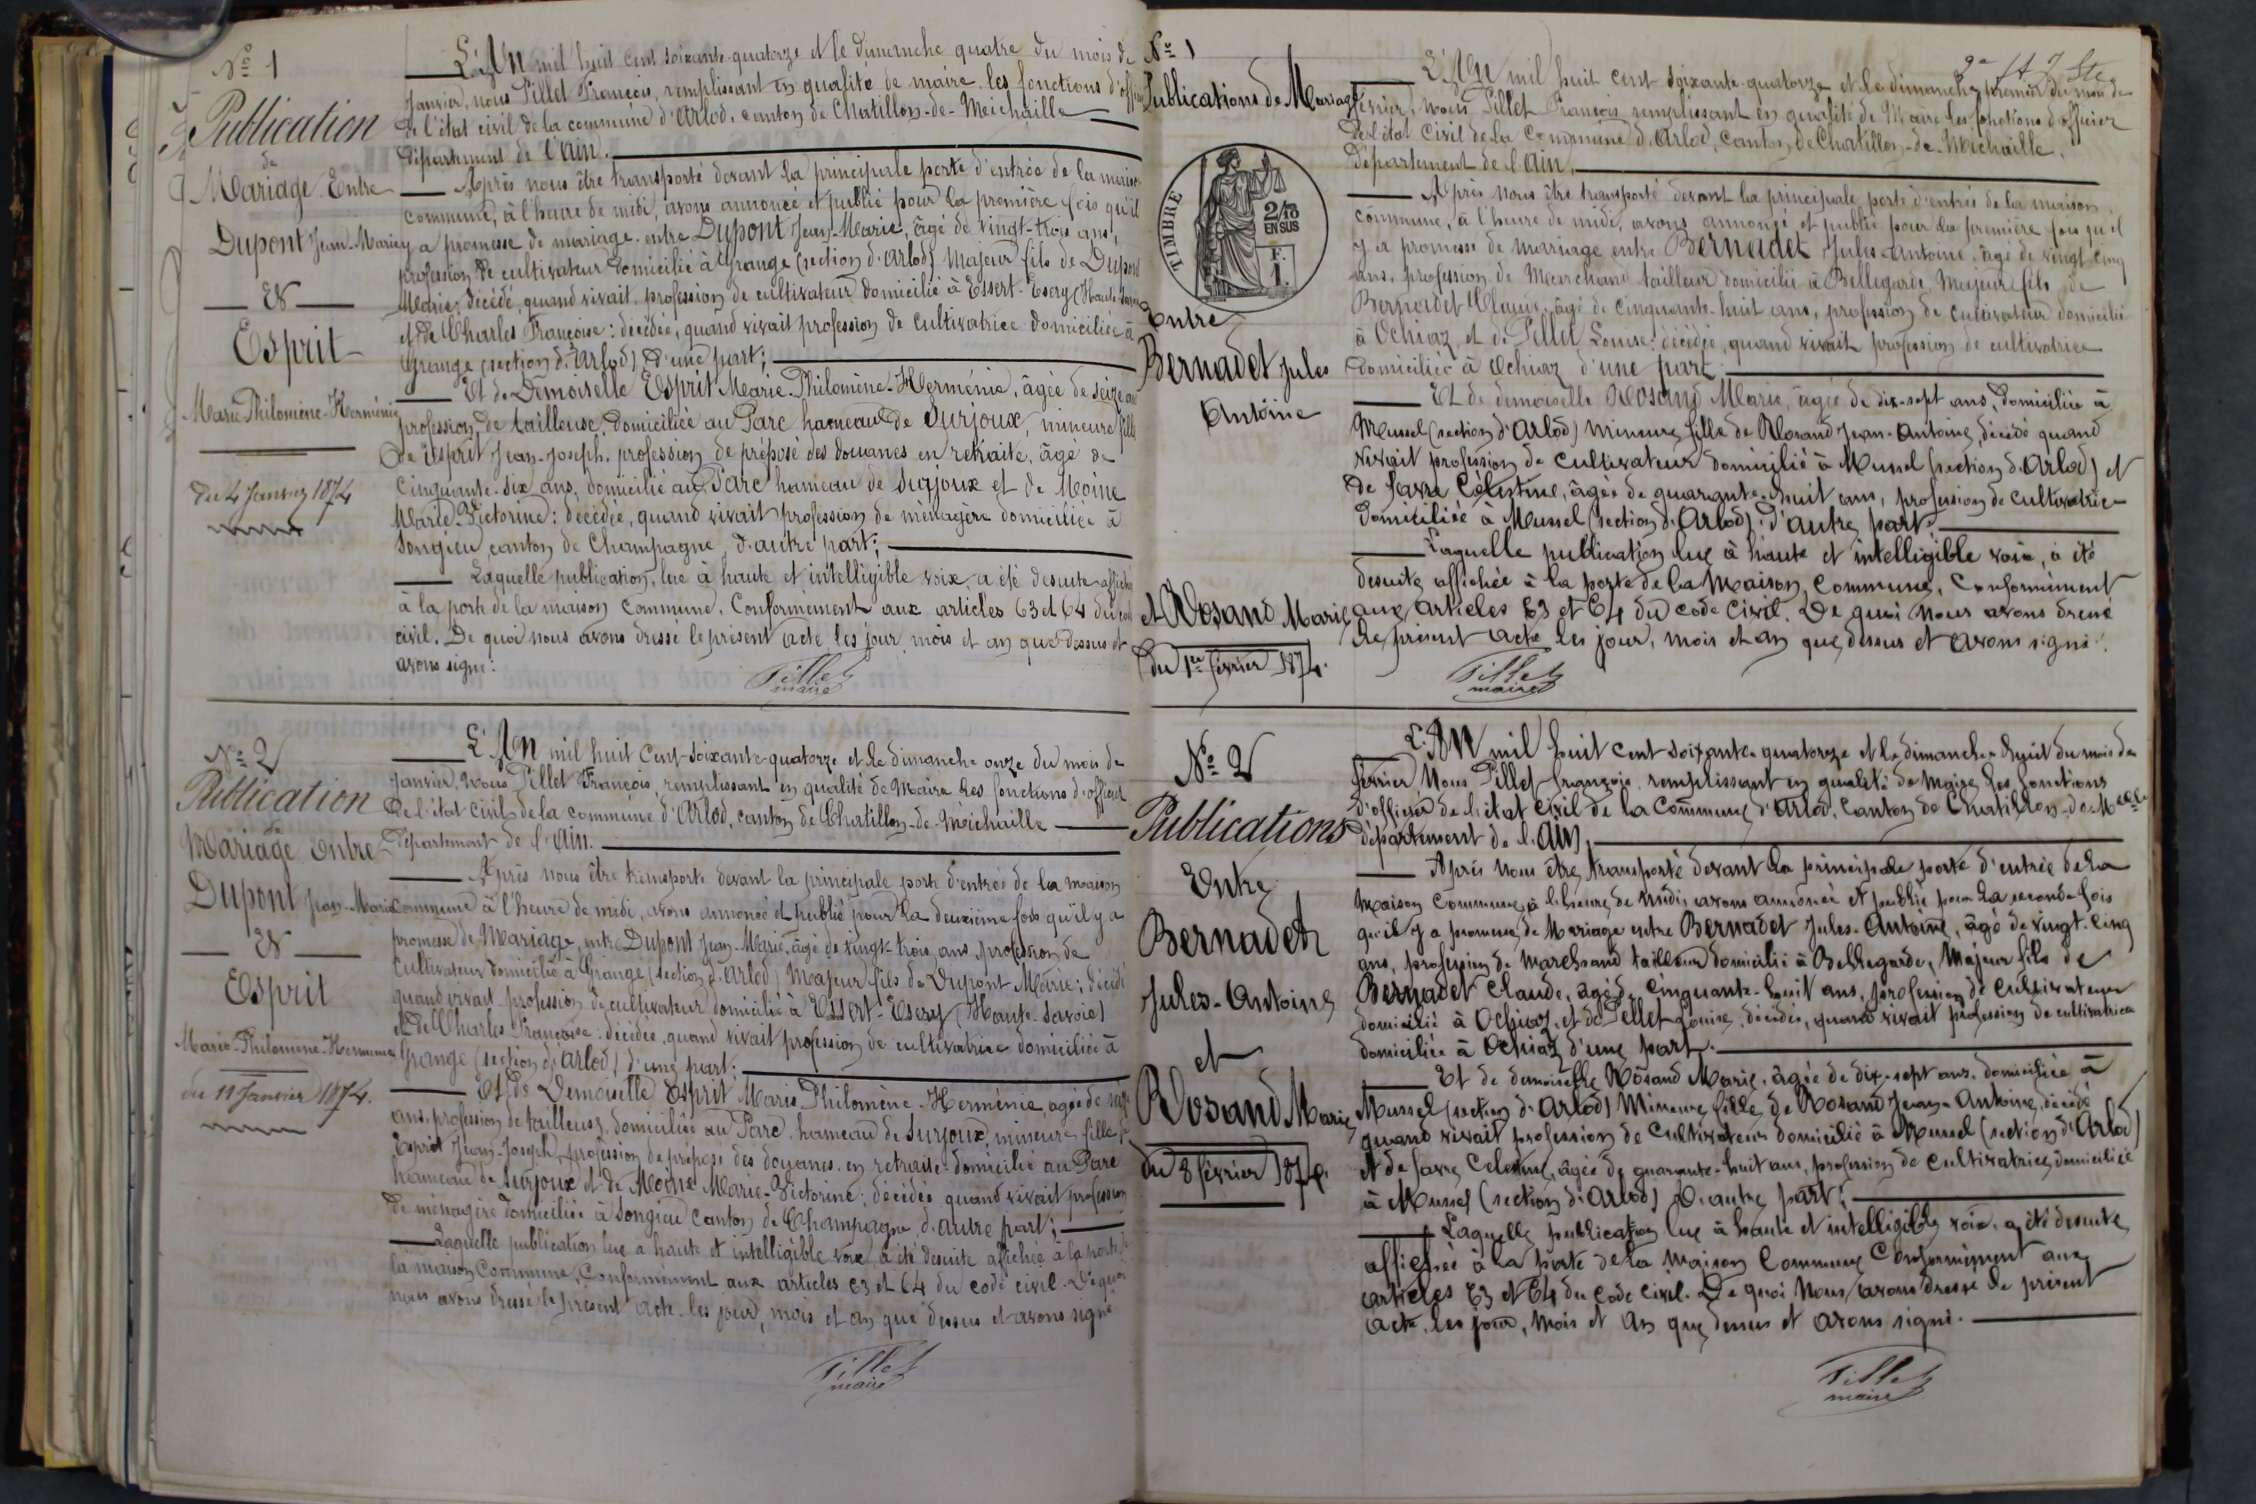 Nº 1
Publication
de
Mariage Entre
Dupont Jean-Marie
Et
Esprit
Marie Philomène-Herménie
du 4 Janvier 1874
L'An mil huit cent soixante-quatorze et le dimanche quatre du mois de
Janvier, nous Pillet François, remplissant en qualité de maire les fonctions d'officier
de l'état civil de la commune d'Arlod, canton de Chatillon-de-Meichaille
département de l'ain.
Après nous être transporté devant la principale porte d'entrée de la maison
commune, à l'heure de midi, avons annoncé et publié pour la première fois qu'il
y a promesse de mariage entre Dupont Jean-Marie, âgé de vingt-trois ans,
profession de cultivateur domicilié à Grange (section d'Arlod) Majeur fils de Dupont
Marie; décédé, quand vivait profession de cultivateur domicilié à Essert-Esery (Haute-Savoie)
et de Charles Françoise: décédée, quand vivait profession de cultivatrice domiciliée à
Grange (section d'Arlod) d'une part;
Et de Demoiselle Esprit Marie-Philomène-Herménie, âgée de seize ans
profession de tailleuse, domiciliée au Parc hameau de Surjoux, mineure fille
de Esprit Jean-Joseph, profession de préposé des douanes en retraite, âgé de
cinquante-six ans, domicilié au Parc hameau de Surjoux et de Moine
Marie-Victorine: décédée, quand vivait profession de ménagère domiciliée à
Songieu canton de Champagne, d'autre part;
Laquelle publication, lue à haute et intelligible voix a été desuite affichée
à la porte de la maison commune. Conformément aux articles 63 et 64 du code
civil. De quoi nous avons dressé le présent acte les jour, mois et an que dessus et
avons signé:
Pillet
maire
Nº 2
Publication
Mariage Entre
Dupont Jean-Marie
Et
Esprit
Marie-Philomène-Herménie
du 11 Janvier 1874.
L'An mil huit cent-soixante-quatorze et le dimanche onze du mois de
Janvier, nous Pillet François, remplissant en qualité de Maire les fonctions d'officier
de l'état civil de la commune d'Arlod, canton de Chatillon-de-Michaille
département de l'Ain.
Après nous être transporté devant la principale porte d'entrée de la maison
commune à l'heure de midi, avons annoncé et publié pour la deuxième fois qu'il y a
promesse de Mariage, entre Dupont Jean-Marie, âgé de vingt-trois ans profession de
Cultivateur domicilié à Grange (section d'Arlod) Majeur fils de Dupont Marie; décédé
quand vivait profession de cultivateur domicilié à Essert-Esery (Haute-Savoie)
et de Charles Françoise: décédée, quand vivait profession de cultivatrice domiciliée à
Grange (section d'Arlod) d'une part;
Et de Demoiselle Esprit Marie Philomène-Herménie, âgée de seize
ans, profession de tailleuse, domiciliée au Parc hameau de Surjoux, mineure fille de
Esprit Jean-Joseph, profession de préposé des douanes en retraite domicilié au Parc
hameau de Surjoux et de Moine Marie-Victorine; décédée quand vivait profession
de ménagère domiciliée à Songieu Canton de Champagne d'autre part;
Laquelle publication lue à haute et intelligible voix a été desuite affichée à la porte de
la maison Commune, Conformément aux articles 63 et 64 du code civil. De quoi
nous avons dressé le présent acte les jour, mois et an que dessus et avons signé
Pillet
maire
Nº 1
Publications de Mariage
TIMBRE
2/10
EN SUS
F.
1.
Entre
Bernadet Jules
Antoine
et Rosand Marie
du 1er février 1874.
L'An mil huit cent soixante-quatorze et le dimanche premier du mois de
février, nous Pillet François remplissant en qualité de Maire les fonctions d'officier
de l'état Civil de la Commune d'Arlod, canton de Chatillon-de-Michaille.
département de l'ain.
Après nous être transporté devant la principale porte d'entrée de la maison
commune, à l'heure de midi, avons annoncé et publié pour la première fois qu'il
y a promesse de marriage entre Bernadet Jules-Antoine, âgé de vingt-cinq
ans, profession de Marchand tailleur domicilié à Bellegarde Majeur fils de
Bernadet Claude, âgé de cinquante-huit ans, profession de cultivateur domicilié
à Ochiaz, et de Pellet Louise; décédée, quand vivait profession de cultivatrice
domiciliée à Ochiaz d'une part.
Et de demoiselle Rosand Marie, âgée de dix-sept ans, domiciliée à
Mussel (section d'Arlod) Mineure fille de Rosand Jean-Antoine, décédé quand
vivait profession de cultivateur domicilié à Mussel (section d'Arlod) et
de Favre Célestine, âgée de quarante-huit ans, profession de cultivatrice
domiciliée à Mussel (section d'Arlod), d'autre part.
Laquelle publication lue à haute et intelligible voix, a été
desuite affichée à la porte de la maison commune, Conformément
aux articles 63 et 64 du code civil. De quoi nous avons dressé
le présent acte les jour, mois et an que dessus et avons signé.
Pillet
maire
Nº 2
Publications
Entre
Bernadet
Jules-Antoine
et
Rosand Marie
du 8 février 1874.
L'An mil huit cent soixante-quatorze et le dimanche huit du mois de
février Nous Pillet françois remplissant en qualité de Maire les fonctions
d'officier de l'état civil de la Commune d'Arlod, Canton de Chatillon-de-Mlle
département de l'Ain.
Après nous être transporté devant la principale porte d'entrée de la
Maison Commune, à l'heure de Midi, avons annoncé et publié pour la seconde fois
qu'il y a promesse de Mariage entre Bernadet Jules-Antoine, âgé de vingt-cinq
ans, profession de marchand tailleur domicilié à Bellegarde, Majeur fils de
Bernadet Claude, âgé de cinquante-huit ans, profession de cultivateur
domicilié à Ochiaz, et de Pellet Louise, décédée, quand vivait profession de cultivatrice
domiciliée à Ochiaz d'une part.
Et de demoiselle Rosand Marie, âgée de dix-sept ans, domiciliée à
Mussel (section d'Arlod) Mineure fille de Rosand Jean-Antoine, décédé
quand vivait profession de Cultivateur domicilié à Mussel (section d'Arlod)
et de favre Celestine, âgée de quarante-huit ans, profession de Cultivatrice, domiciliée
à Mussel (section d'Arlod) d'autre part;
Laquelle publication lue à haute et intelligible voix, a été desuite
affichée à la porte de la Maison Commune Conformément aux
articles 63 et 64 du Code Civil. De quoi Nous avons dressé le présent
acte, les jour, Mois et An que dessus et avons signé.
Pillet
maire